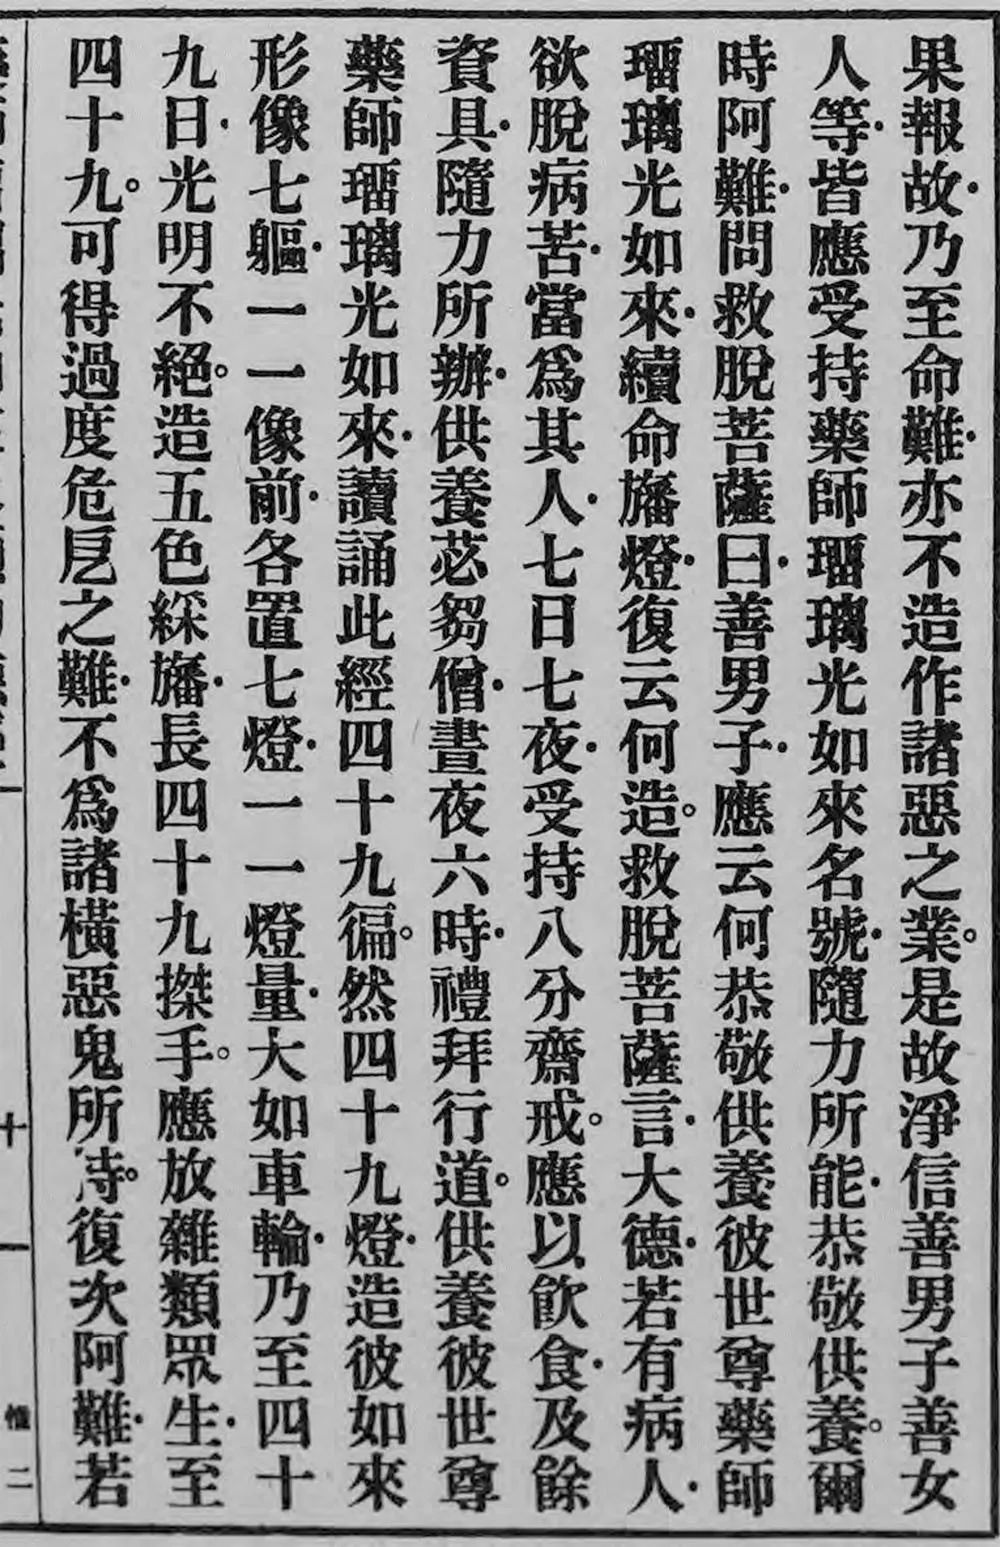 果報故·乃至命難·亦不造作諸惡之業。是故淨信善男子善女
人等·皆應受持藥師瑠璃光如來名號·隨力所能·恭敬供養。爾
時阿難·問救脫菩薩曰·善男子·應云何恭敬供養彼世尊藥師
瑠璃光如來·續命旛燈·復云何造。救脫菩薩言·大德·若有病人·
欲脫病苦·當爲其人·七日七夜·受持八分齋戒。應以飮食·及餘
資具·隨力所辦·供養苾芻僧·晝夜六時·禮拜行道。供養彼世尊
藥師瑠璃光如來·讀誦此經四十九徧。然四十九燈·造彼如來
形像七軀·一一像前·各置七燈·一一燈量·大如車輪·乃至四十
九日·光明不絕。造五色綵旛·長四十九搩手。應放雜類眾生·至
四十九。可得過度危戹之難·不爲諸橫惡鬼所持。復次阿難·若
十一
二